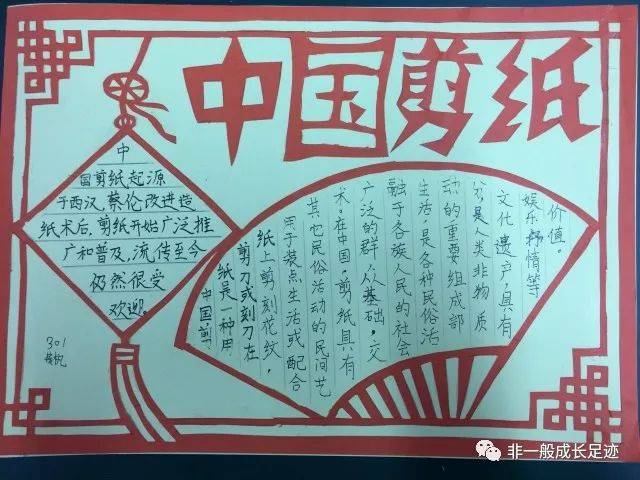 中国剪纸
中
国剪纸起源
于西汉,蔡伦改进造
纸术后,剪纸开始广泛推
广和普及,流传至今
仍然很受
欢迎。
中国剪
纸是一种用
剪刀或刻刀在
纸上剪刻花纹,
用于装点生活或配合
其它民俗活动的民间艺
术。在中国,剪纸具有
广泛的群众基础,交
融于各族人民的社会
生活,是各种民俗活
动的重要组成部
分,是人类非物质
文化遗产,具有
娱乐、抒情等
价值。
301
非一般成长足迹